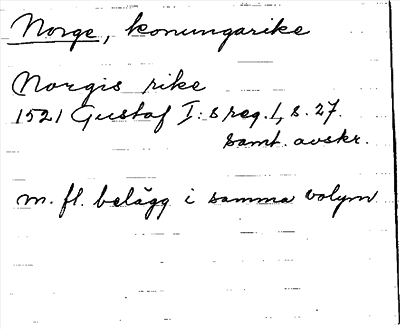 Norge, konungarike
Norgis rike
1521 Gustaf I:s reg. 1, s. 27.
samt. avskr.
m. fl. belägg i samma volym